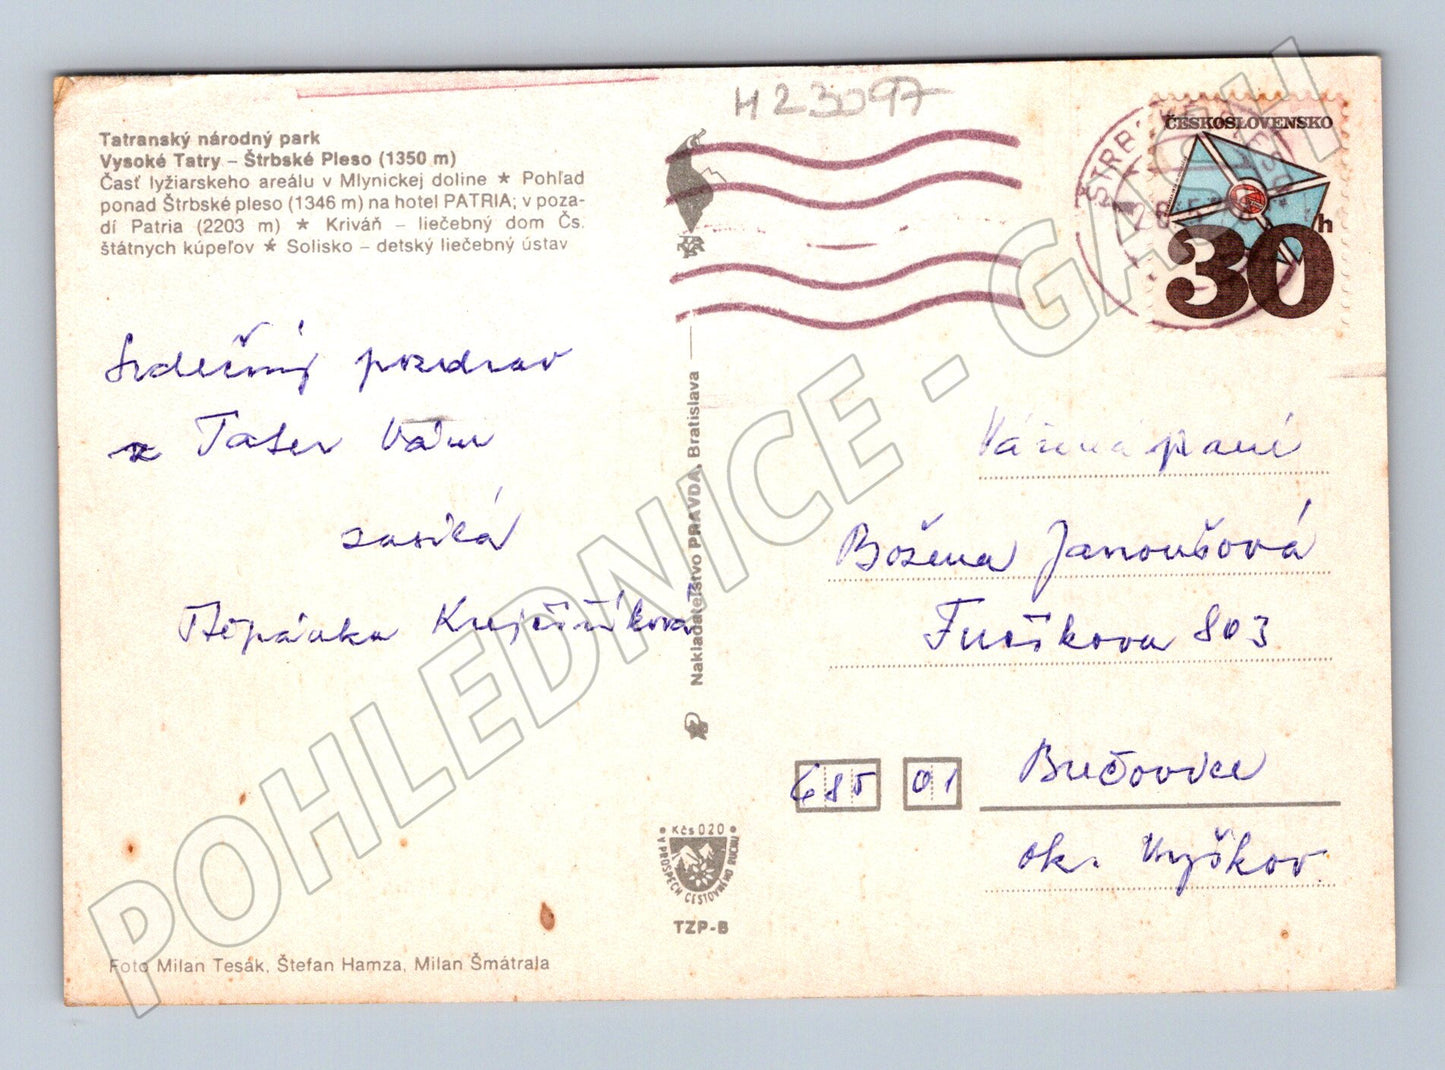 H23097
Tatranský národný park
Vysoké Tatry – Štrbské Pleso (1350 m)
Časť lyžiarskeho areálu v Mlynickej doline ★ Pohľad
ponad Štrbské pleso (1346 m) na hotel PATRIA; v poza-
dí Patria (2203 m) ★ Kriváň – liečebný dom Čs.
štátnych kúpeľov ★ Solisko – detský liečebný ústav
ČESKOSLOVENSKO
30h
Srdečný pozdrav
z Tater Vám
zasílá
Štěpánka
Nakladateľstvo PRAVDA, Bratislava
Vážená paní
Božena Janoušová
Fučíkova 803
685 01 Bučovice
ok. Vyškov
Kčs 020
V PROSPECH CESTOVNÉHO RUCHU
TZP-B
Foto Milan Tesák, Štefan Hamza, Milan Šmátrala
POHLEDNICE - GALASH